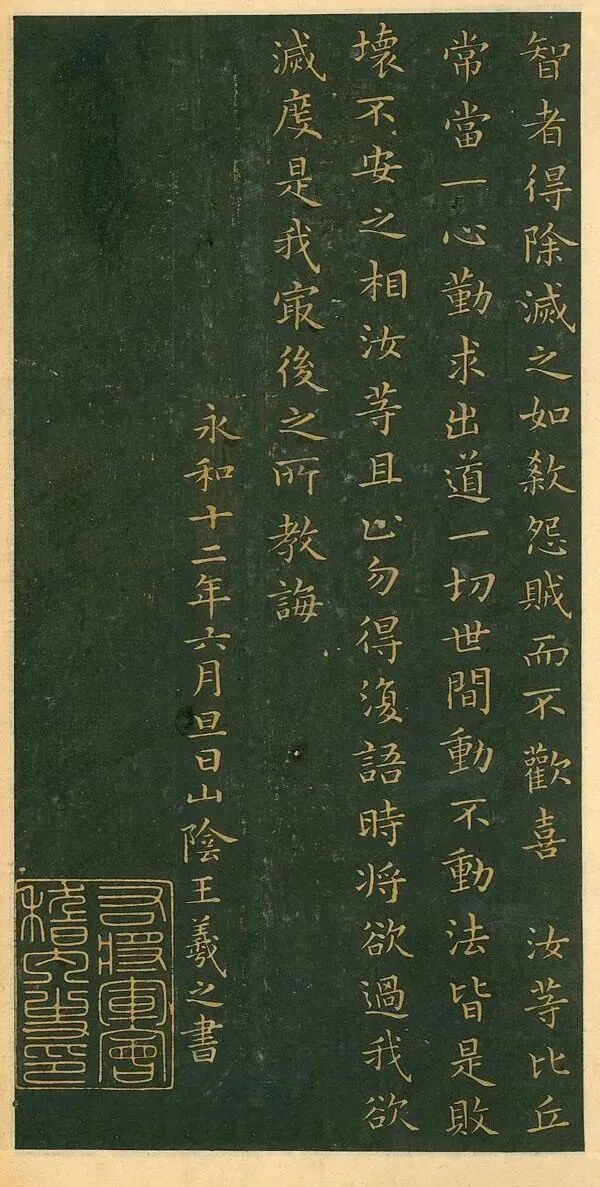 智者得除滅之如殺怨賊而不歡喜 汝等比丘
常當一心勤求出道一切世間動不動法皆是敗
壞不安之相汝等且止勿得復語時将欲過我欲
滅度是我㝡後之所教誨
永和十二年六月旦日山陰王羲之書
右將軍會
稽內史印